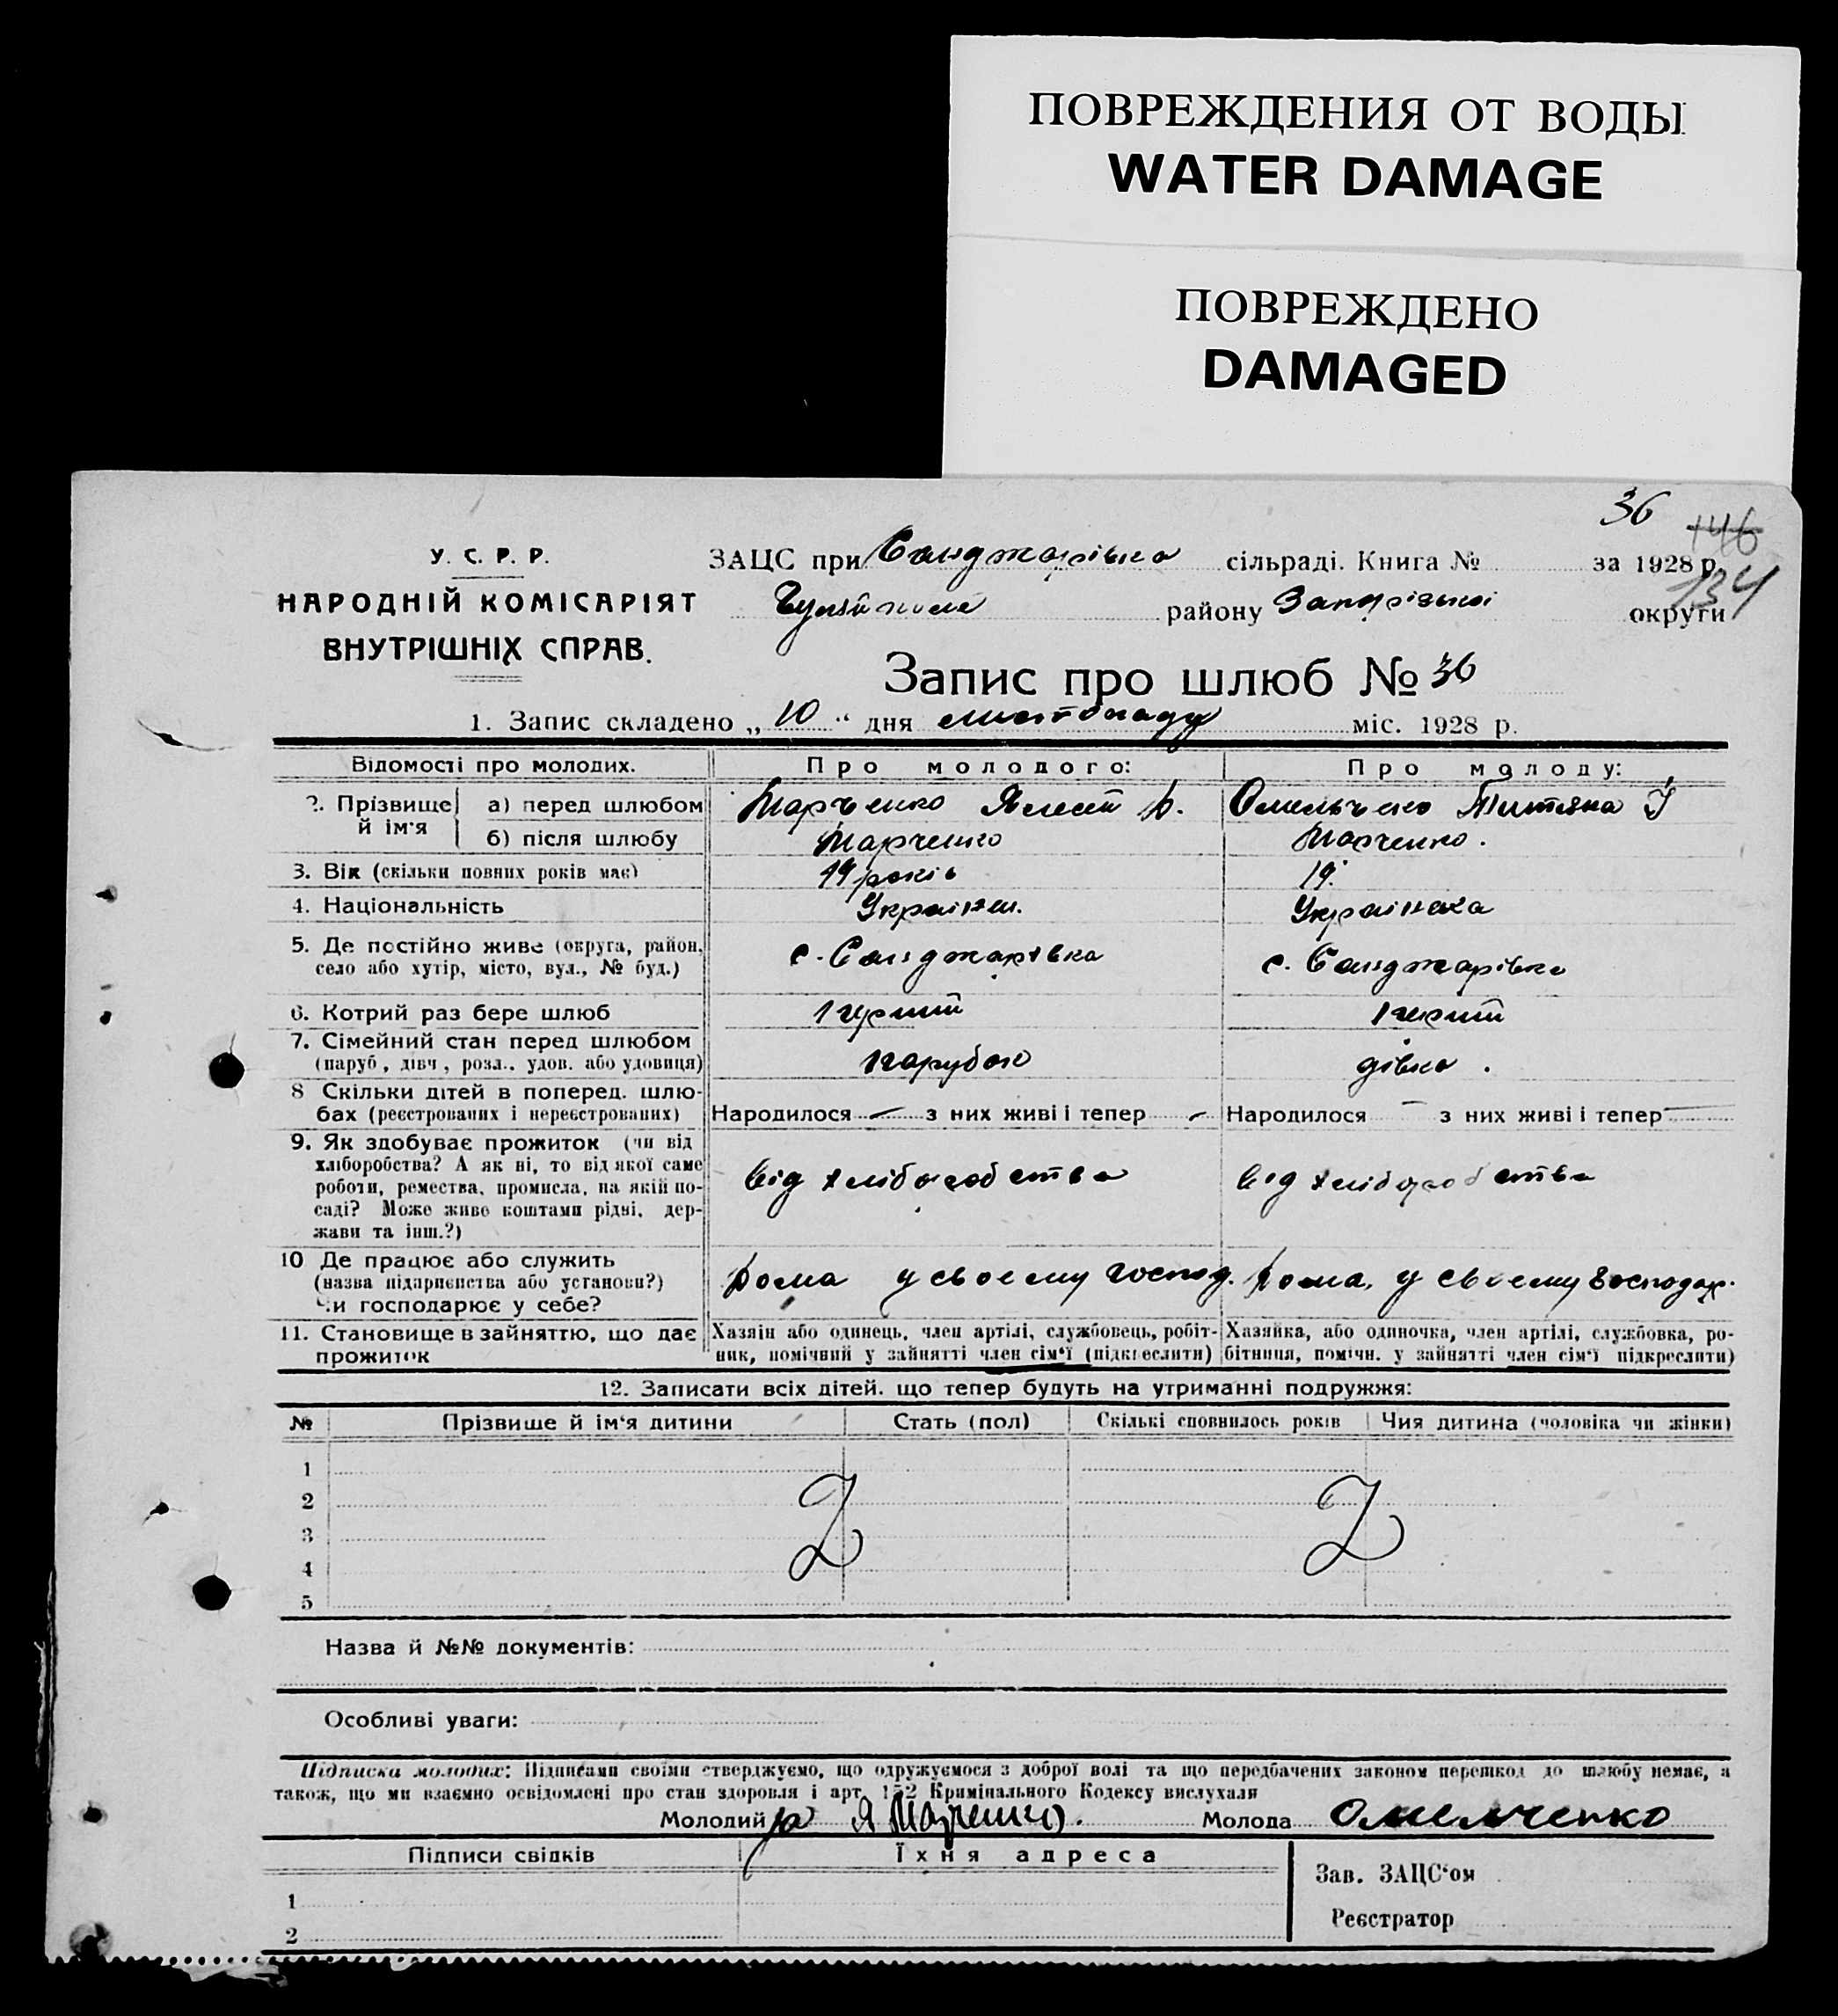 ПОВРЕЖДЕНИЯ ОТ ВОДЫ
WATER DAMAGE
ПОВРЕЖДЕНО
DAMAGED
36
146
134
У. С. Р. Р.
НАРОДНІЙ КОМІСАРІЯТ
ВНУТРІШНІХ СПРАВ.
ЗАЦС при Санджарівка сільраді. Книга № за 1928 р.
району Запорізької округи
Запис про шлюб № 36
1. Запис складено „ 10 “ дня листопаду міс. 1928 р.
Відомості про молодих. Про молодого: Про молоду:
2. Прізвище й ім'я а) перед шлюбом Марченко В. Омельченко Титяна І
б) після шлюбу Марченко Марченко.
3. Вік (скільки повних років має) 19 років 19.
4. Національність Українец. Українска
5. Де постійно живе (округа, район, с. Санджарівка с. Санджарівка
село або хутір, місто, вул., № буд.)
6. Котрий раз бере шлюб 1 перший 1 перший
7. Сімейний стан перед шлюбом парубок дівка .
(паруб, дівч, розл., удов. або удовиця)
8 Скільки дітей в поперед. шлю-
бах (реєстрованих і нереєстрованих) Народилося — з них живі і тепер — Народилося — з них живі і тепер —
9. Як здобуває прожиток (чи від
хліборобства? А як ні, то від якої саме
роботи, ремества, промисла, на якій по- від хліборобства від хліборобства
саді? Може живе коштами рідні, дер-
жави та інш.?)
10 Де працює або служить
(назва підприємства або установи?) Дома у своему господ. Дома, у своему господар.
Чи господарює у себе?
11. Становище в зайняттю, що дає Хазяїн або одинець, член артілі, службовець, робіт- Хазяйка, або одиночка, член артілі, службовка, ро-
прожиток ник, помічний у зайнятті член сім'ї (підкреслити) бітниця, помічн. у зайнятті член сім'ї підкреслити)
12. Записати всіх дітей. що тепер будуть на утриманні подружжя:
№ Прізвище й ім'я дитини Стать (пол) Скількі сповнилось років Чия дитина (чоловіка чи жінки)
1
2
3
4
5
Назва й №№ документів:
Особливі уваги:
Підписка молодих: Підписами своїми стверджуємо, що одружуємося з доброї волі та що передбачених законом перешкод до шлюбу немає, а
також, що ми взаємно освідомлені про стан здоровля і арт. 152 Кримінального Кодексу вислухали
Молодий Я Марченко. Молода Омелченко
Підписи свідків Їхня адреса Зав. ЗАЦС'ом
1
Реєстратор
2